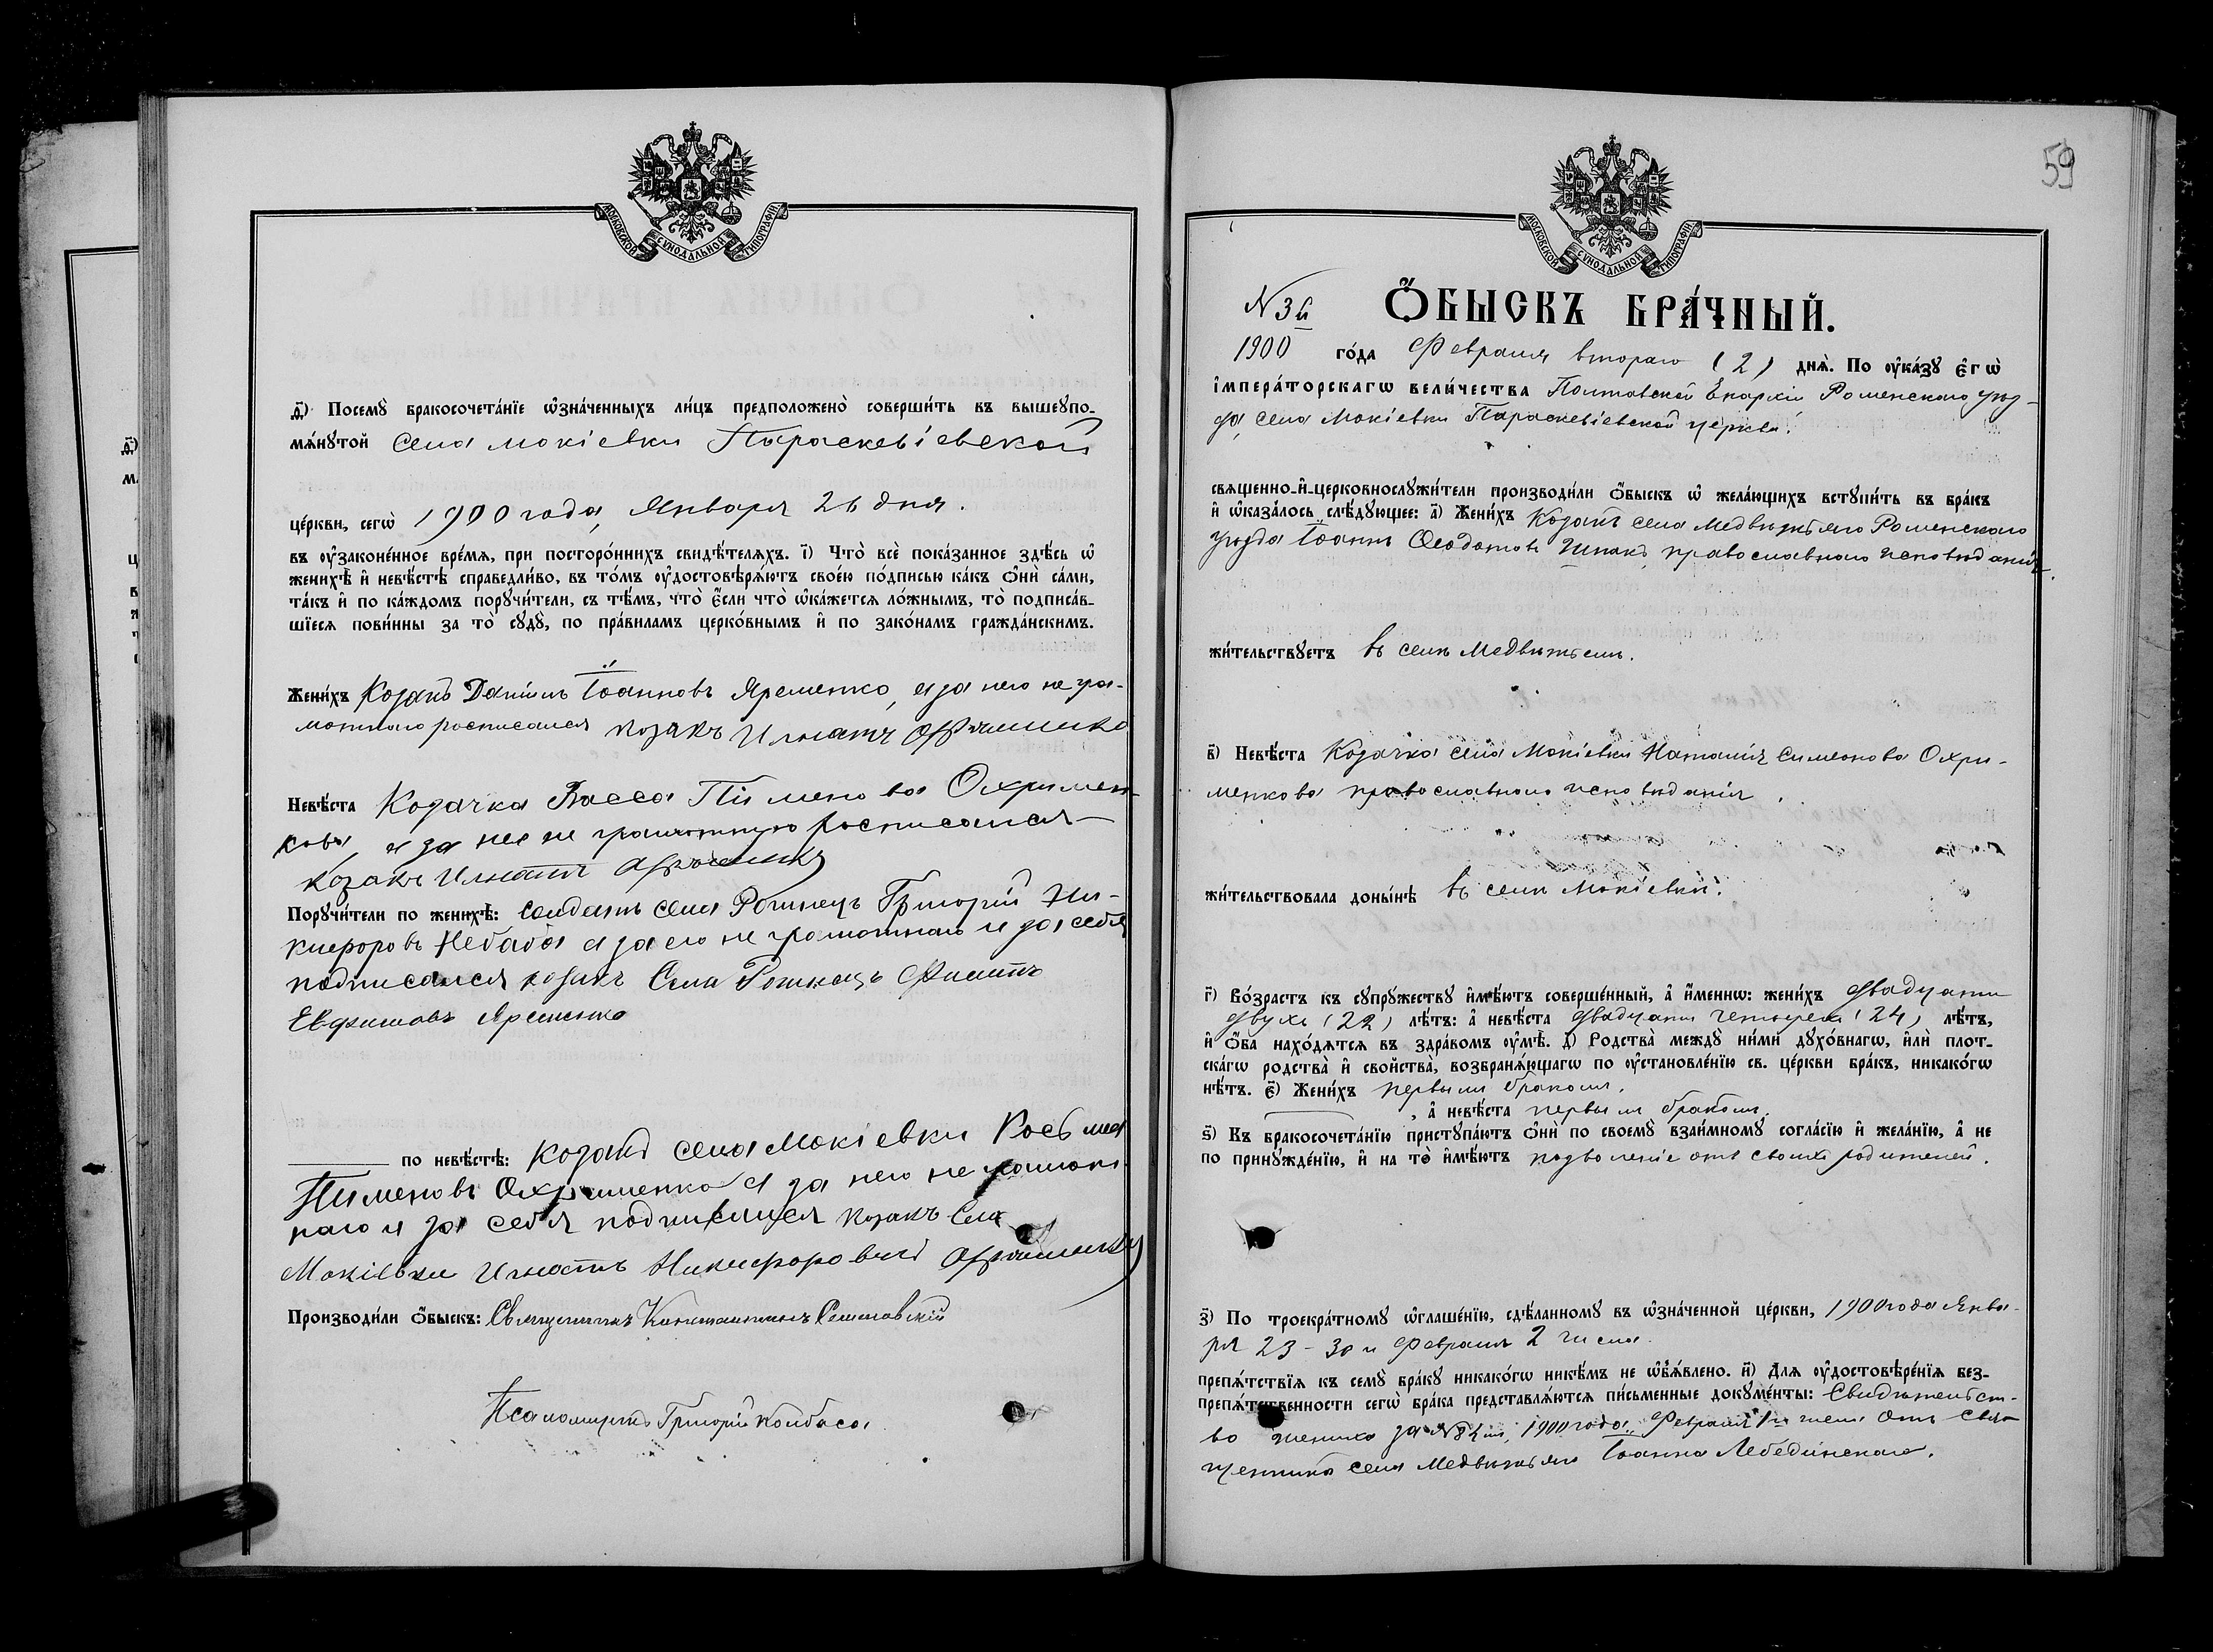 МОСКОВСКОЙ СѴНОДАЛЬНОЙ ТИПОГРАФІИ
д҃)
ѳ҃) Посемꙋ̀ бракосочета́нїе ѡ҆зна́ченныхъ ли́цъ предположено̀ соверши́ть въ вышеꙋпо-
мѧ́нꙋтой села Мокіевки Параскевіевской
це́ркви, сегѡ̀ 1900 года, Января 26 дня.
въ ᲂу҆зако́не́нное вре́мѧ, при посторо́ннихъ свидѣ́телѧхъ. і҃) Что̀ всѐ пока́занное здѣ́сь ѡ҆
женихѣ̀ и҆ невѣ́стѣ справедли́во, въ то́мъ ᲂу҆достовѣрѧ́ютъ свое́ю по́дписью ка́къ ѻ҆нѝ са́ми,
та́къ и҆ по ка́ждомъ порꙋчи́тели, съ тѣ́мъ, что̀ є҆́сли что̀ ѡ҆ка́жетсѧ ло́жнымъ, то̀ подписа́в-
шїесѧ пови́нны за то̀ сꙋдꙋ̀, по пра́виламъ церко́внымъ и҆ по зако́намъ гражда́нскимъ.
Жени́хъ Козакъ Даніилъ Іоанновъ Яременко, а за него не гра-
мотнаго росписался козакъ Игнатъ
Невѣ́ста Козачка Васса Піменова Охримен-
кова, а за нее не грамотную росписался
козакъ Игнатъ
Порꙋчи́тели по женихѣ̀: Солдатъ села Рогинецъ Григорій Ни-
кифоровъ Небаба а за его не грамотнаго и за себя
подписался козакъ Села Рогинецъ Филипъ
Евфимовъ Яременко
по невѣ́стѣ: Козакъ села Мокіевки Косьма
Пименовъ Охрименко а за него не грамот-
наго и за себя подписался козакъ Села
Мокіевки Игнатъ Никифоровичъ
Производи́ли ѻ҆́быскъ: Священникъ Константинъ
Псаломщикъ Григорій Колбаса
59
МОСКОВСКОЙ СѴНОДАЛЬНОЙ ТИПОГРАФІИ
N 36
Ѻ҆́БЫСКЪ БРА́ЧНЫЙ.
1900 го́да Февраля втораго (2) днѧ̀. По ᲂу҆ка́зꙋ є҆гѡ̀
і҆мпера́торскагѡ вели́чества Полтавской Епархіи Роменскаго уѣз-
да, села Мокіевки Параскевіевской церкви.
свѧщенно-и҆-церковнослꙋжи́тели производи́ли ѻ҆́быскъ ѡ҆ жела́ющихъ встꙋпи́ть въ бра́къ
и҆ ѡ҆каза́лось слѣ́дꙋющее: а҃) Жени́хъ Козакъ села Медвѣжьяго Роменскаго
уѣзда Іоаннъ Ѳеодотовъ Шпакъ, православнаго исповѣданія.
жи́тельствꙋетъ въ селѣ Медвѣжьемъ.
в҃) Невѣ́ста Козачка села Мокіевки Наталія Симеонова Охри-
менкова православнаго исповѣданія.
жи́тельствовала доны́нѣ въ селѣ Мокіевкѣ.
г҃) Во́зрастъ къ сꙋпрꙋ́жествꙋ и҆мѣ́ютъ соверше́нный, а҆ и҆́меннѡ: жени́хъ двадцати
двухъ (22) лѣ́тъ: а҆ невѣ́ста двадцати четырехъ (24) лѣ́тъ,
и҆ ѻ҆́ба нахо́дѧтсѧ въ здра́вомъ ᲂу҆мѣ̀. д҃) Родства̀ междꙋ̀ ни́ми дꙋхо́внагѡ, и҆лѝ плот-
ска́гѡ родства̀ и҆ свойства̀, возбранѧ́ющагѡ по ᲂу҆становле́нїю св. це́ркви бра́къ, никако́гѡ
нѣ́тъ. є҃) Жени́хъ первымъ бракомъ.
, а҆ невѣ́ста первымъ бракомъ.
ѕ҃) Къ бракосочета́нїю пристꙋпа́ютъ ѻ҆нѝ по своемꙋ̀ взаи́мномꙋ согла́сїю и҆ жела́нїю, а҆ не
по принꙋжде́нїю, и҆ на то̀ и҆мѣ́ютъ позволеніе отъ своихъ родителей.
з҃) По троекра́тномꙋ ѡ҆глаше́нїю, сдѣ́ланномꙋ въ ѡ҆зна́ченной це́ркви, 1900 года Янва-
ря 23 - 30 и Февраля 2 числа.
препѧ́тствїѧ къ семꙋ̀ бра́кꙋ никако́гѡ никѣ́мъ не ѡ҆б̾ѧ́влено. и҃) Длѧ ᲂу҆достовѣре́нїѧ без-
препѧ́тственности сегѡ̀ бра́ка представлѧ́ютсѧ пи́сьменные докꙋме́нты: Свидѣтельст-
во жениха за № 1900 года, Февраля 1 числа отъ свя-
щенника села Медвѣжьяго Іоанна Лебединскаго.